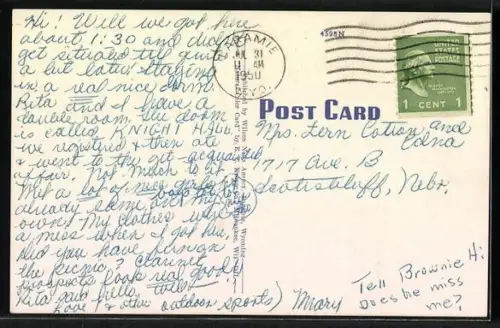 Hi! Well we got here
about 1:30 and didn't
get situated till quite
a bit later. staying
in a real nice dorm
Rita and I have a
double room. The dorm
is called KNIGHT HALL
we registered & then ate
& went to the get-acquainted
affair. Not much to it
Met a lot of nice girls
already some out my
own! My clothes were
a mess when I got here.
Did you have fun on
the picnic?
prospects look real good
Rita said hello, too
Love (& other outdoor sports) Mary
LARAMIE
JUL 31
AM
1950
WYO.
4598N
UNITED STATES
POSTAGE
1 CENT 1
POST CARD
Mrs. Fern Cotton and
Edna
1717 Ave. B
Scottsbluff, Nebr.
Tell Brownie Hi
Does he miss
me?